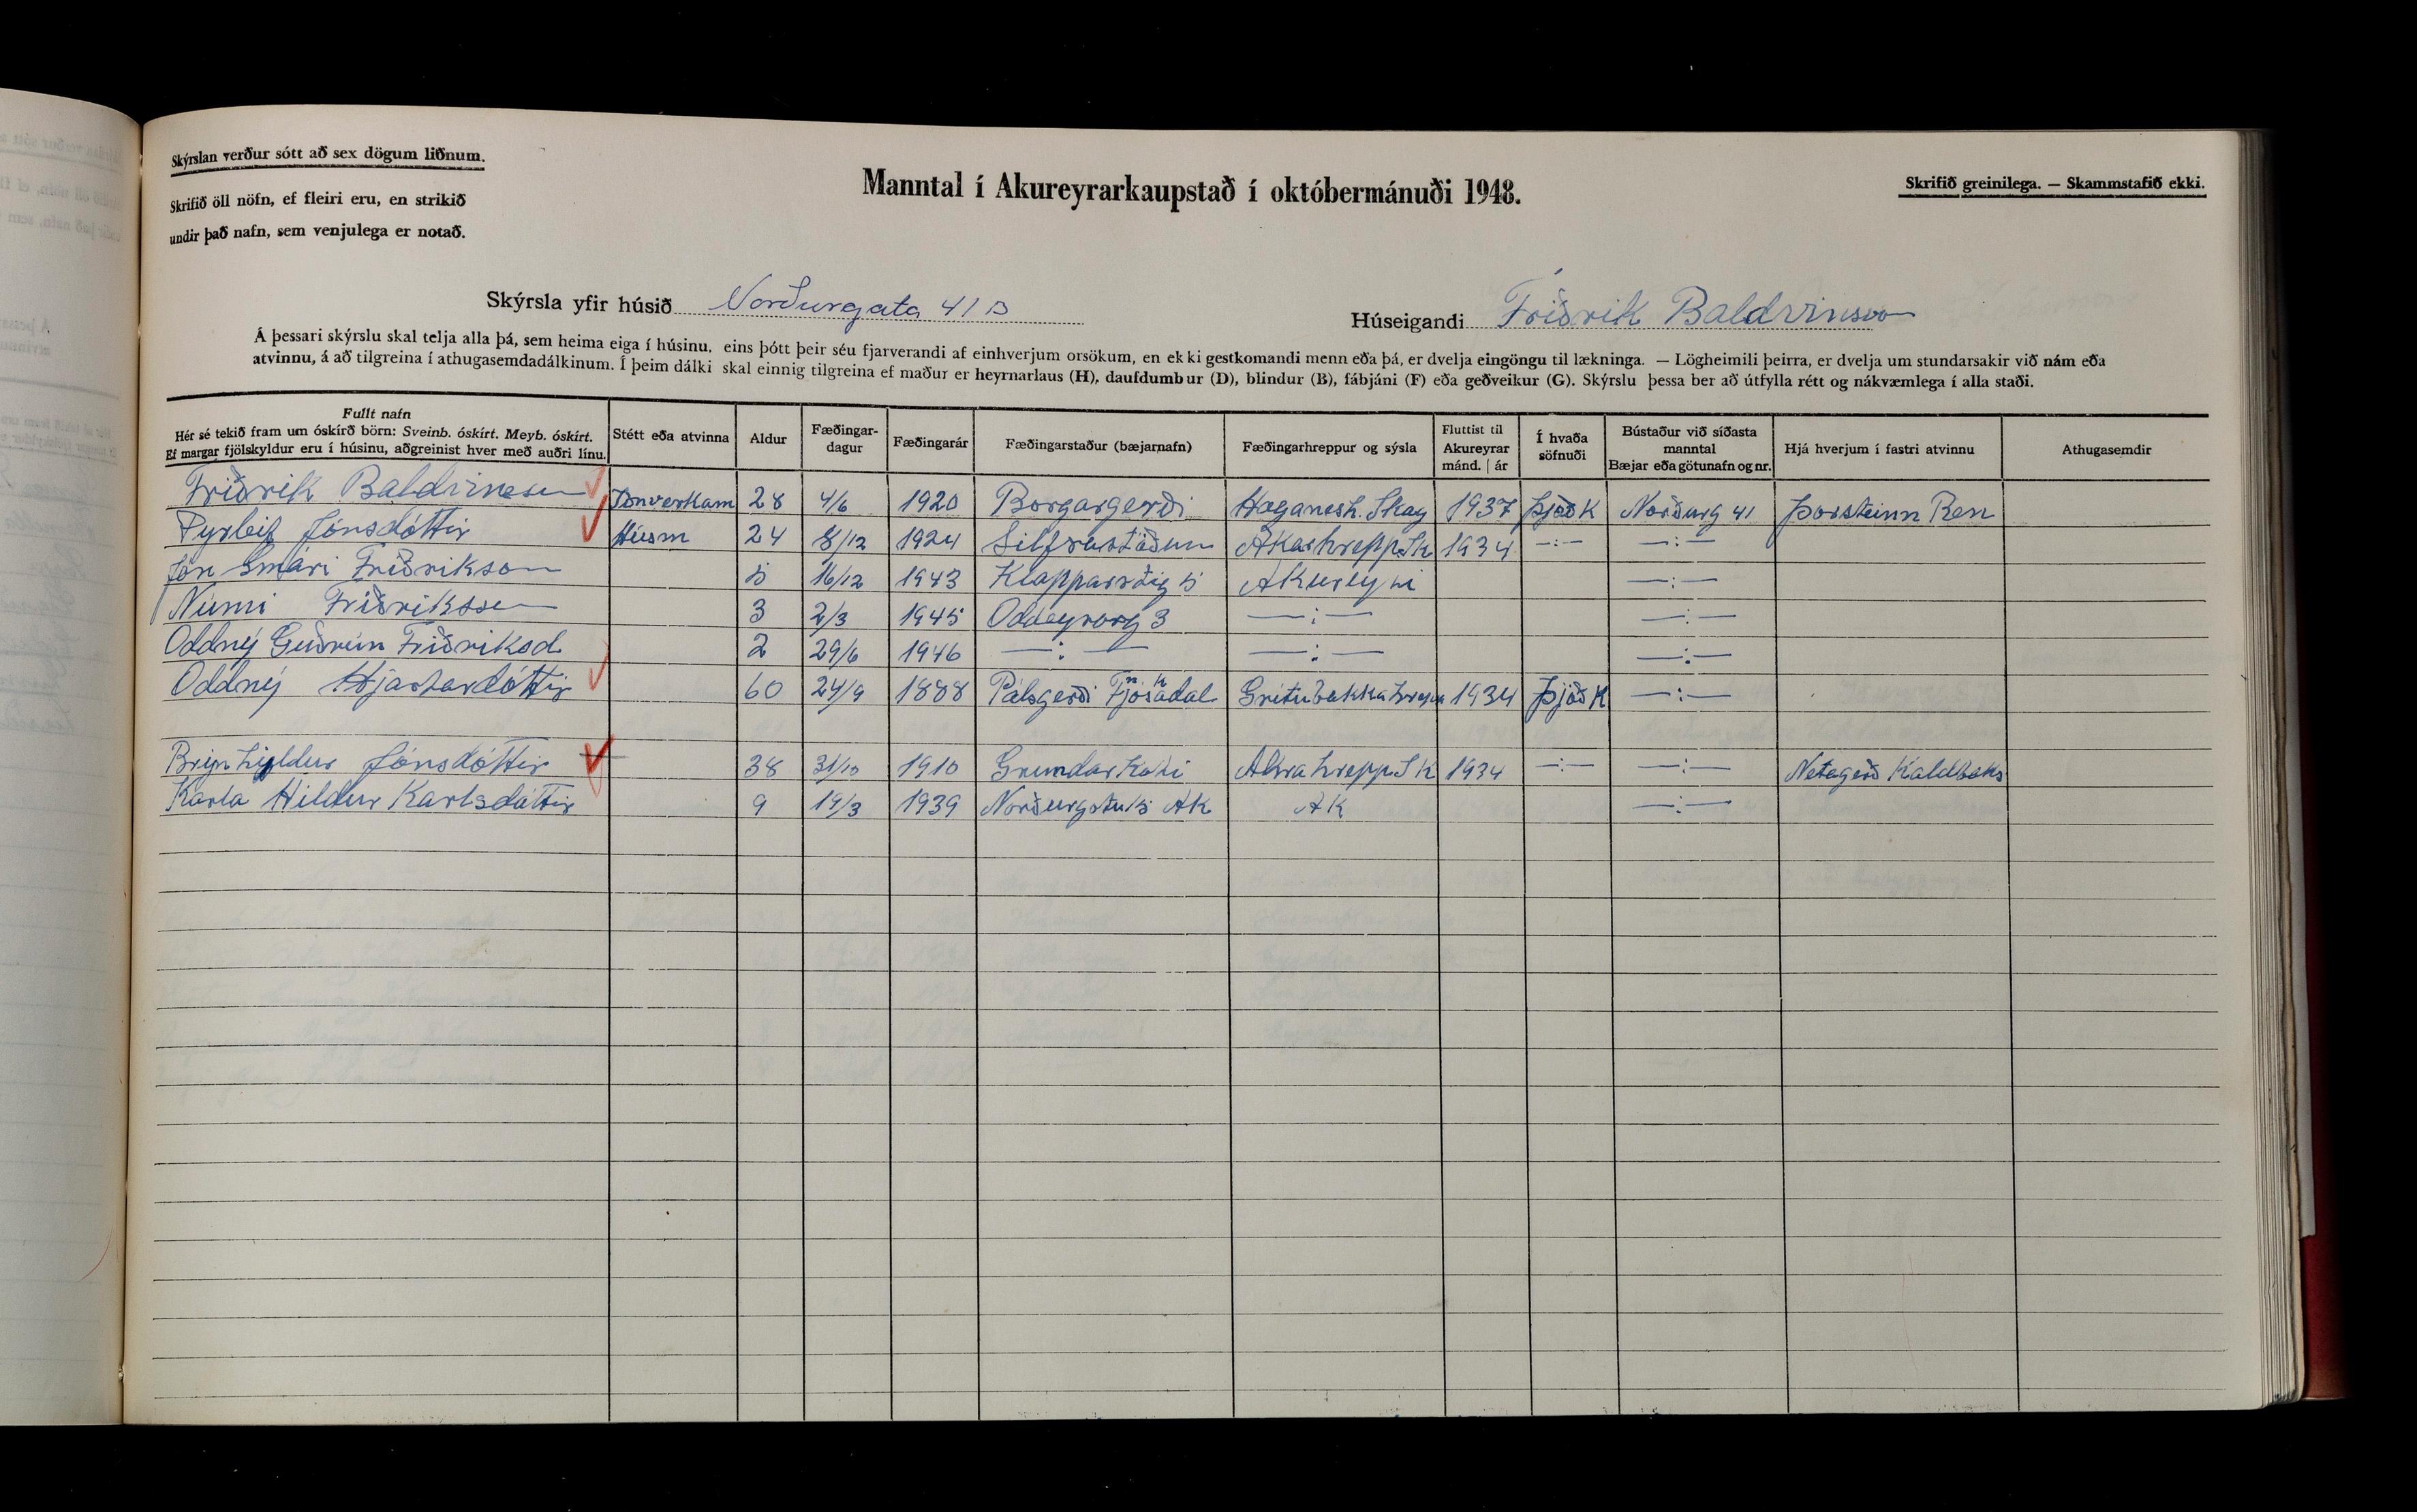 Skýrslan verður sótt að sex dögum liðnum.
Skrifið öll nöfn, ef fleiri eru, en strikið
undir það nafn, sem venjulega er notað.
Manntal í Akureyrarkaupstað í októbermánuði 1948.
Skrifið greinilega. — Skammstafið ekki.
Skýrsla yfir húsið Norðurgata 41 B
Húseigandi Friðrik Baldvinsson
Á þessari skýrslu skal telja alla þá, sem heima eiga í húsinu, eins þótt þeir séu fjarverandi af einhverjum orsökum, en ekki gestkomandi menn eða þá, er dvelja eingöngu til lækninga. — Lögheimili þeirra, er dvelja um stundarsakir við nám eða
atvinnu, á að tilgreina í athugasemdadálkinum. Í þeim dálki skal einnig tilgreina ef maður er heyrnarlaus (H), daufdumbur (D), blindur (B), fábjáni (F) eða geðveikur (G). Skýrslu þessa ber að útfylla rétt og nákvæmlega í alla staði.
Fullt nafn
Hér sé tekið fram um óskírð börn: Sveinb. óskírt. Meyb. óskírt.
Ef margar fjölskyldur eru í húsinu, aðgreinist hver með auðri línu.
Stétt eða atvinna
Aldur
Fæðingar-
dagur
Fæðingarár
Fæðingarstaður (bæjarnafn)
Fæðingarhreppur og sýsla
Fluttist til
Akureyrar
mánd. | ár
Í hvaða
söfnuði
Bústaður við síðasta
manntal
Bæjar eða götunafn og nr.
Hjá hverjum í fastri atvinnu
Athugasemdir
Friðrik Baldvinsson Iðnverkam 28 4/6 1920 Borgargerði Haganesh. Skag 1937 Þjóðk Norðurg 41 Þorsteinn Ren
Pyrleif Jónsdóttir Húsm 24 8/12 1924 Silfrastöðum Akrahrepp Sk 1934 —:— —:—
Jón Smári Friðrikson 5 16/12 1943 Klapparstíg 5 Akureyri —:—
Númi Friðriksson 3 2/3 1945 Oddeyrarg 3 —:— —:—
Oddný Guðrún Friðriksd 2 29/6 1946 —:— —:— —:—
Oddný Hjartardóttir 60 24/9 1888 Pálsgerði Fjósadal Grítubakkahrepp 1934 Þjóðk —:—
Brynhildur Jónsdóttir 38 31/10 1910 Grundarkoti Akrahrepp Sk 1934 —:— —:— Netagerð Kaldbaks
Karla Hildur Karlsdóttir 9 19/3 1939 Norðurgötu 15 AK AK —:—